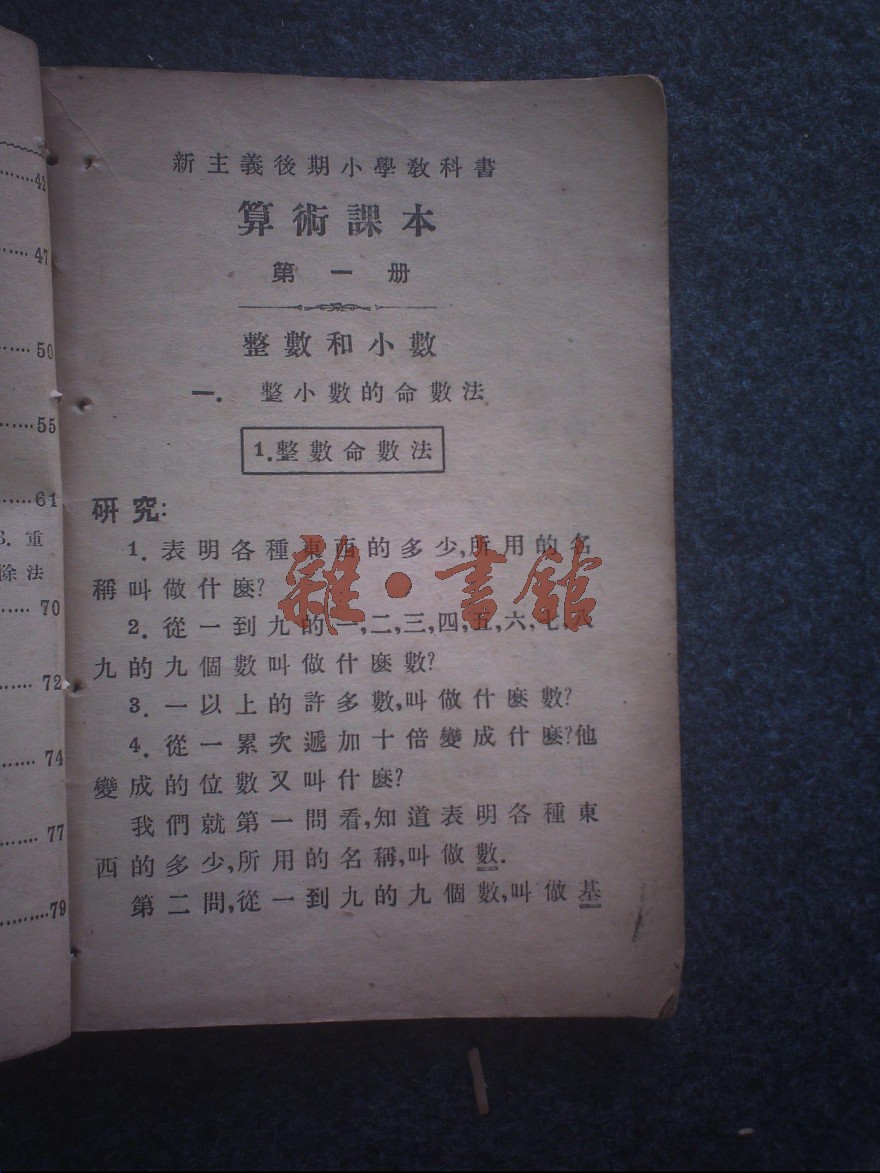 新主義後期小學教科書
算術課本
第一册
整數和小數
一. 整小數的命數法
1.整數命數法
研究:
1. 表明各種東西的多少,所用的名
稱叫做什麼?
2. 從一到九的一,二,三,四,五,六,七,
九的九個數叫做什麼數?
3. 一以上的許多數,叫做什麼數?
4. 從一累次遞加十倍變成什麼?他
變成的位數又叫什麼?
我們就第一問看,知道表明各種東
西的多少,所用的名稱,叫做數.
第二問,從一到九的九個數,叫做基
雜·書館
47
50
55
61
3. 重
除法
70
72
74
77
79